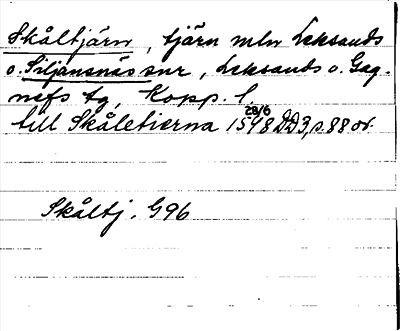 Skåltjärn, tjärn mln Leksands
o. Siljansnäs snr, Leksands o. Gag-
nefs tg, Kopp. l.
till Skåletierna 1598 28/6 DD3, s. 88 or.
Skåltj. G96